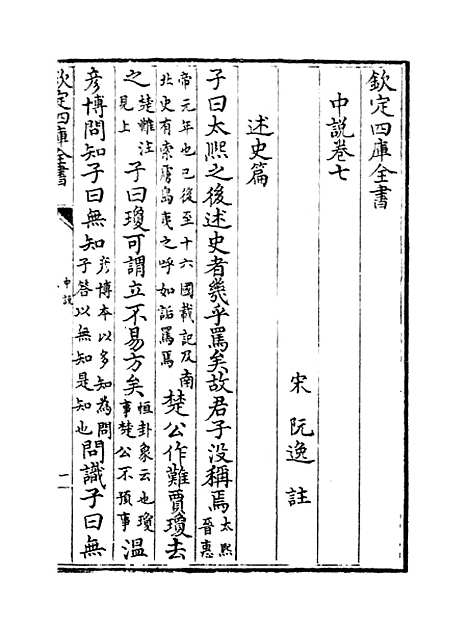 欽定四庫全書
中說卷七
宋 阮逸 註
述史篇
子曰太熙之後述史者幾乎罵矣故君子没稱焉太熙晉惠
帝元年也已後至十六國載記及南北史有索虜島夷之呼如詬罵焉楚公作難賈瓊去
之楚難注見上子曰瓊可謂立不易方矣恒卦象云也瓊事楚公不預事溫
彦博問知子曰無知彦博本以多知為問子答以無知是知也問識子曰無
欽定四庫全書
中說
一